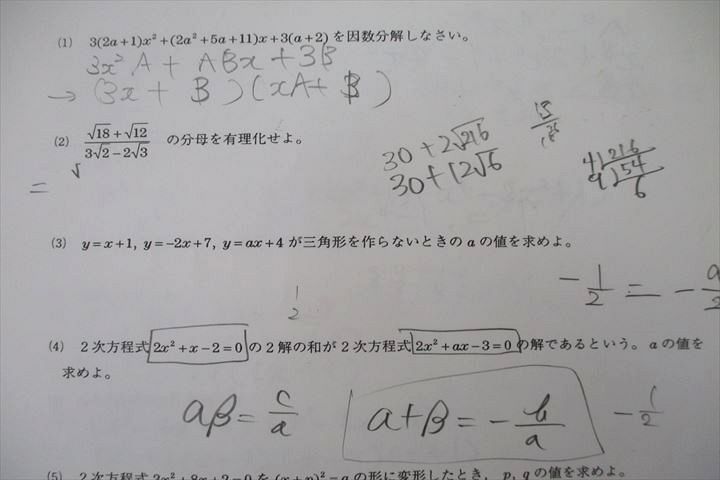 (1) 3(2a+1)x²+(2a²+5a+11)x+3(a+2)を因数分解しなさい。
3x²A + ABx + 3B
→ (3x + B)(xA + B)
(2) (√18+√12)/(3√2−2√3) の分母を有理化せよ。
30 + 2√216
30 + 12√6
4)216
9)54
6
= √
(3) y=x+1, y=−2x+7, y=ax+4 が三角形を作らないときの a の値を求めよ。
1/2
−1/2 = −a/2
(4) 2次方程式 2x²+x−2=0 の2解の和が2次方程式 2x²+ax−3=0 の解であるという。a の値を
求めよ。
αβ = c/a
α+β = −b/a
−1/2